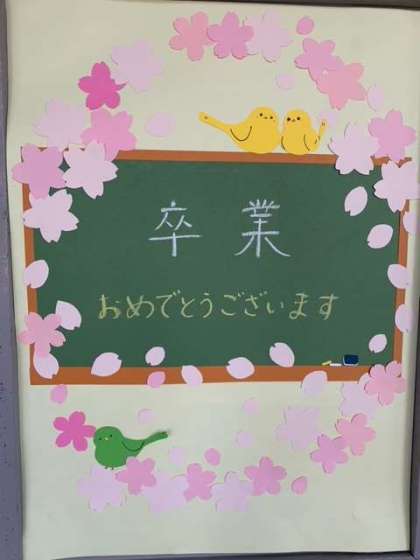 卒業
おめでとうございます